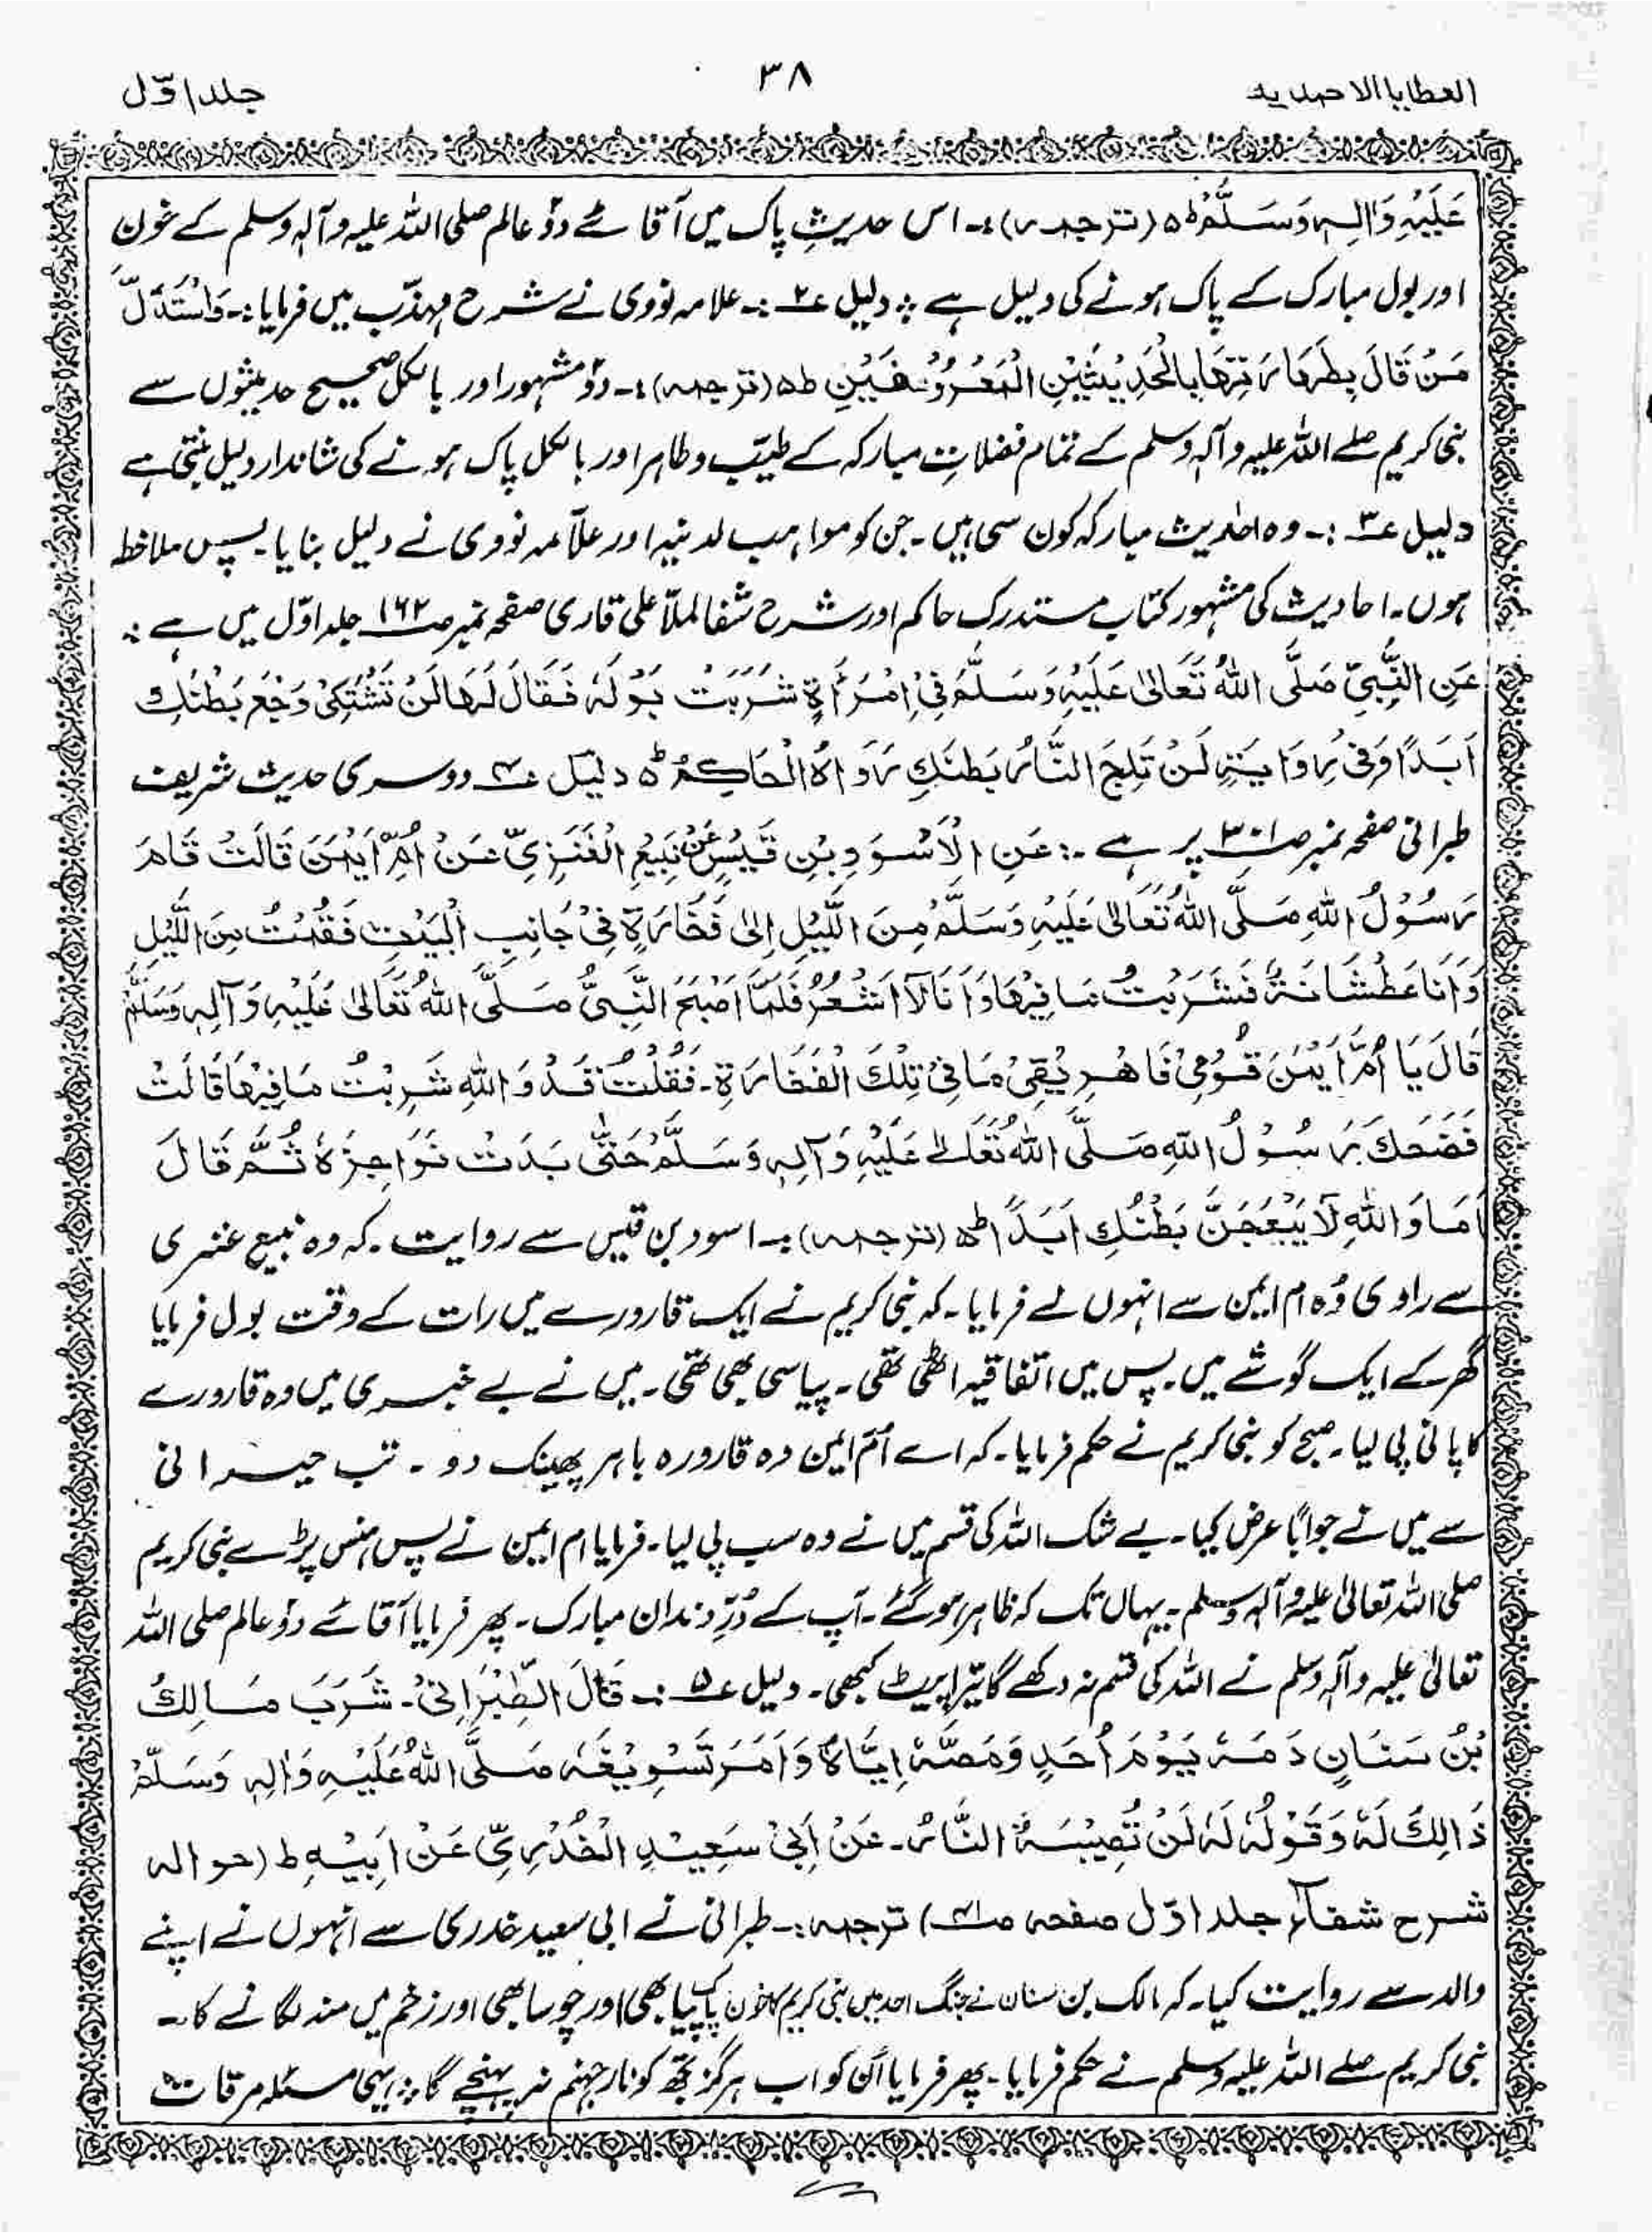 العطایا الاحمدیہ
۳۸
جلد اوّل
عَلَیْہِ وَاٰلِہٖ وَسَلَّمْ ط ہ (ترجمہ) :۔ اس حدیثِ پاک میں آقائے دوؑ عالم صلی اللہ علیہ وآلہ وسلم کے خونِ
اور بول مبارک کے پاک ہونے کی دلیل ہے ؞ دلیل ۲ :۔ علامہ نووی نے شرح مہذّب میں فرمایا :۔ وَاسْتَدَلَّ
مَنْ قَالَ بِطَہَارَتِہَا بِالْحَدِیْثَیْنِ الْمَعْرُوْفَیْنِ ط ہ (ترجمہ) :۔ دوؑ مشہور اور بالکل صحیح حدیثوں سے
نبی کریم صلے اللہ علیہ وآلہ وسلم کے تمام فضلاتِ مبارکہ کے طیّب وطاہر اور بالکل پاک ہونے کی شاندار دلیل بنتی ہے
دلیل ۳ :۔ وہ احادیث مبارکہ کون سی ہیں ۔ جن کو مواہب لدنیہ اور علّامہ نووی نے دلیل بنایا ۔ پس ملاخطہ
ہوں ۔ احادیث کی مشہور کتاب مستدرک حاکم اور شرح شفا لملّا علی قاری صفحہ نمبر صـ ۱۶۲ جلد اوّل میں ہے :
عَنِ النَّبِیِّ صَلَّی اللہُ تَعَالٰی عَلَیْہِ وَسَلَّمْ فِیْ اِمْرَأَۃٍ شَرَبَتْ بَوْلَہٗ فَقَالَ لَہَا لَنْ تَشْتَکِیْ وَجْعَ بَطْنَکِ
اَبَدًا وَفِیْ رِوَایَۃٍ لَنْ تَلِجَ النَّارُ بَطْنَکِ رَوَاہُ الْحَاکِمُ ط ہ دلیل ۴ دوسری حدیث شریف
طبرانی صفحہ نمبر صـ ۳۰۱ پر ہے :۔ عَنِ الْاَسْوَدِ بْنِ قَیْسٍ عَنْ نَبِیْعِ الْعَنَزِیِّ عَنْ اُمِّ اَیْمَنَ قَالَتْ قَامَ
رَسُوْلُ اللہِ صَلَّی اللہُ تَعَالٰی عَلَیْہِ وَسَلَّمْ مِنَ اللَّیْلِ اِلٰی فَخَّارَۃٍ فِیْ جَانِبِ الْبَیْتِ فَقُمْتُ مِنَ اللَّیْلِ
وَاَنَا عَطْشَانَۃٌ فَشَرَبْتُ مَا فِیْہَا وَاَنَا لَا اَشْعُرُ فَلَمَّا اَصْبَحَ النَّبِیُّ صَلَّی اللہُ تَعَالٰی عَلَیْہِ وَآلِہٖ وَسَلَّمْ
قَالَ یَا اُمَّ اَیْمَنَ قُوْمِیْ فَاہْرِیْقِیْ مَا فِیْ تِلْکَ الْفَخَارَۃِ ۔ فَقُلْتُ قَدْ وَاللہِ شَرِبْتُ مَا فِیْہَا قَالَتْ
فَضَحَکَ رَسُوْلُ اللہِ صَلَّی اللہُ تَعَالٰی عَلَیْہِ وَآلِہٖ وَسَلَّمْ حَتّٰی بَدَتْ نَوَاجِزُہٗ ثُمَّ قَالَ
اَمَا وَاللہِ لَا یَبْعَجَنَّ بَطْنُکِ اَبَدًا ط ہ (ترجمہ) :۔ اسود بن قیس سے روایت ۔ کہ وہ نبیع عنبری
سے راوی وُہ ام ایمن سے انہوں نے فرمایا ۔ کہ نبی کریم نے ایک قارورے میں رات کے وقت بول فرمایا
گھر کے ایک گوشے میں ۔ پس میں اتفاقیہ اٹھی تھی ۔ پیاسی بھی تھی ۔ میں نے بے خبری میں وہ قارورے
کا پانی پی لیا ۔ صبح کو نبی کریم نے حکم فرمایا ۔ کہ اے اُمّ ایمن وہ قارورہ باہر پھینک دو ۔ تب حیرانی
سے میں نے جوابًا عرض کیا ۔ بے شک اللہ کی قسم میں نے وہ سب پی لیا ۔ فرمایا ام ایمن نے پس ہنس پڑے نبی کریم
صلی اللہ تعالیٰ علیہ وآلہ وسلم ۔ یہاں تک کہ ظاہر ہو گئے ۔ آپ کے دُرِّ دندان مبارک ۔ پھر فرمایا آقائے دوؑ عالم صلی اللہ
تعالیٰ علیہ وآلہ وسلم نے اللہ کی قسم نہ دکھے گا تیرا پیٹ کبھی ۔ دلیل ۵ :۔ قَالَ الطَّبْرَانِیْ ۔ شَرَبَ مَالِکُ
بْنُ سَنَانٍ دَمَہٗ یَوْمَ اُحَدٍ وَمَصَّہٗ اِیَّاہُ وَاَمَرَ تَسْوِیْغَہٗ صَلَّی اللہُ عَلَیْہِ وَاٰلِہٖ وَسَلَّمْ
ذَالِکَ لَہٗ وَقَوْلُہٗ لَہٗ لَنْ تُصِیْبَہٗ النَّارُ ۔ عَنْ اَبِیْ سَعِیْدِ الْخُدْرِیِّ عَنْ اَبِیْہِ ط (حوالہ
شرح شفاء جلد اوّل صفحہ صـ ۴۱) ترجمہ :۔ طبرانی نے ابی سعید خدری سے انہوں نے اپنے
والد سے روایت کیا ۔ کہ مالک بن سنان نے جنگ احد میں نبی کریم کا خون پاک پیا بھی اور چوسا بھی اور زخم میں منہ لگانے کا ۔
نبی کریم صلے اللہ علیہ وسلم نے حکم فرمایا ۔ پھر فرمایا اُن کو اب ہرگز تجھ کو نار جہنم نہ پہنچے گا ؞ یہی مسئلہ مرقات